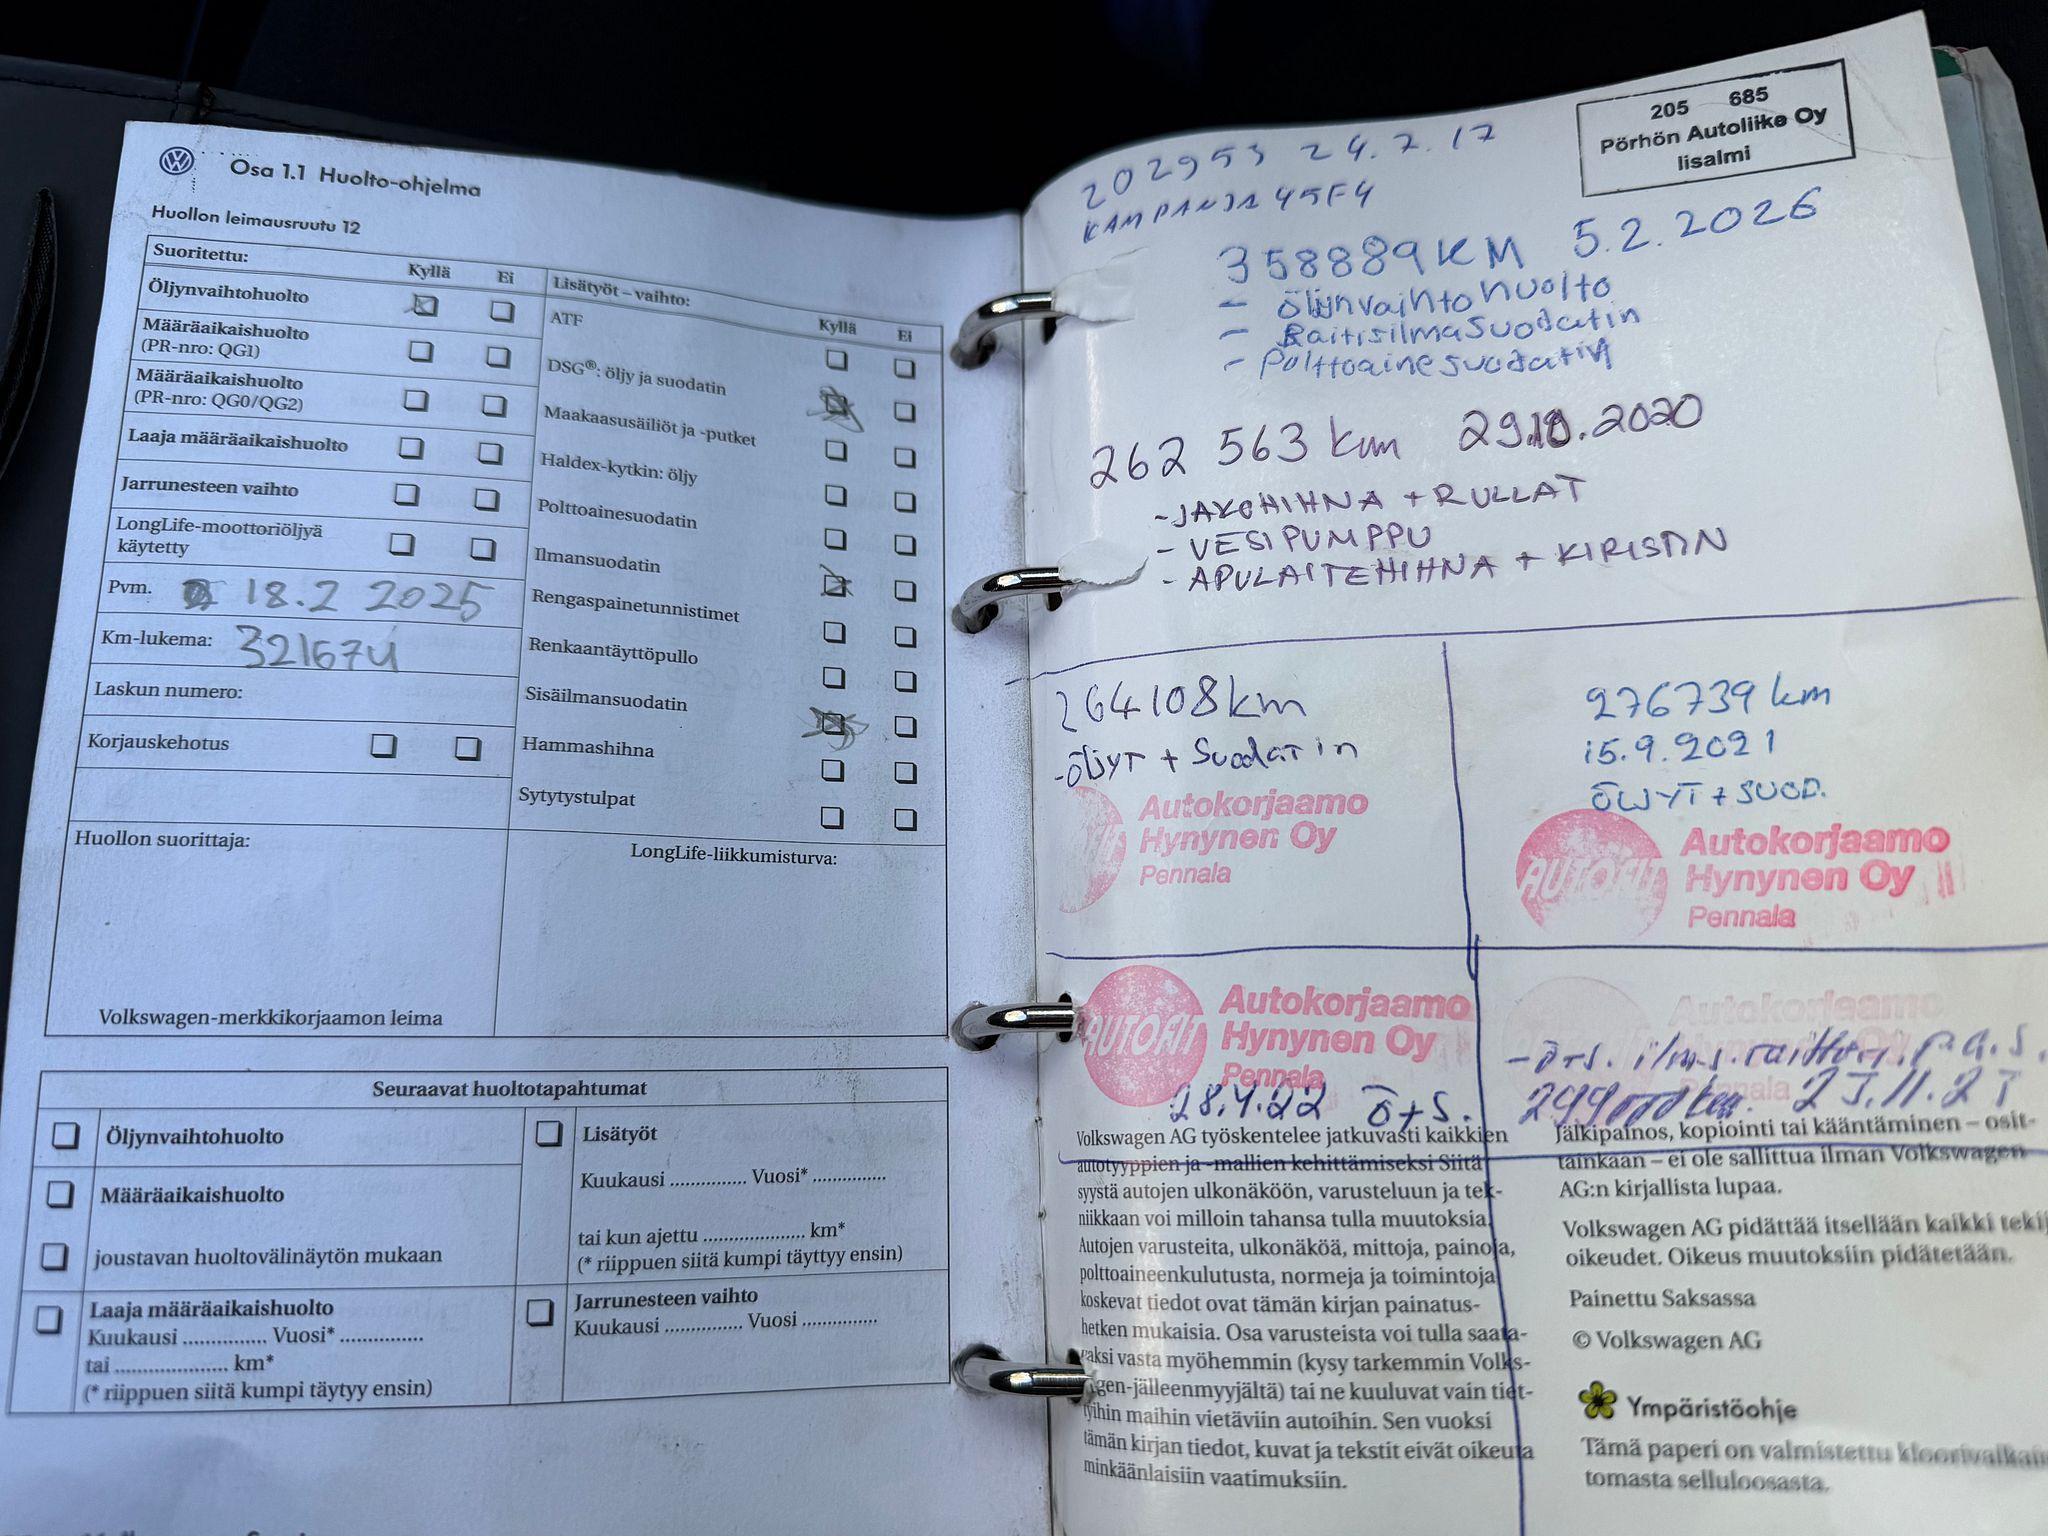 Osa 1.1 Huolto-ohjelma
Huollon leimausruutu 12
Suoritettu:
Kyllä Ei
Öljynvaihtohuolto
Määräaikaishuolto
(PR-nro: QG1)
Määräaikaishuolto
(PR-nro: QG0/QG2)
Laaja määräaikaishuolto
Jarrunesteen vaihto
LongLife-moottoriöljyä
käytetty
Pvm. 18.2 2025
Km-lukema: 321674
Laskun numero:
Korjauskehotus
Lisätyöt – vaihto:
Kyllä Ei
ATF
DSG®: öljy ja suodatin
Maakaasusäiliöt ja -putket
Haldex-kytkin: öljy
Polttoainesuodatin
Ilmansuodatin
Rengaspainetunnistimet
Renkaantäyttöpullo
Sisäilmansuodatin
Hammashihna
Sytytystulpat
Huollon suorittaja:
Volkswagen-merkkikorjaamon leima
LongLife-liikkumisturva:
Seuraavat huoltotapahtumat
Öljynvaihtohuolto
Määräaikaishuolto
joustavan huoltovälinäytön mukaan
Laaja määräaikaishuolto
Kuukausi ............... Vuosi* ...............
tai .................... km*
(* riippuen siitä kumpi täytyy ensin)
Lisätyöt
Kuukausi .............. Vuosi* .............
tai kun ajettu .................... km*
(* riippuen siitä kumpi täyttyy ensin)
Jarrunesteen vaihto
Kuukausi .............. Vuosi .............
202953 24.7.17
KAMPANJA 45F4
205 685
Pörhön Autoliike Oy
Iisalmi
358889KM 5.2.2026
- Öljynvaihtohuolto
- Raitisilmasuodatin
- Polttoainesuodatin
262 563 km 29.10.2020
- JAKOHIHNA + RULLAT
- VESIPUMPPU
- APULAITEHIHNA + KIRISTIN
264108km
-ÖljyT + Suodatin
Autokorjaamo
Hynynen Oy
Pennala
276739 km
15.9.2021
ÖLJYT + SUOD.
AUTOFIT
Autokorjaamo
Hynynen Oy
Pennala
AUTOFIT
Autokorjaamo
Hynynen Oy
Pennala
28.4.22 Ö+S.
Autokorjaamo
Volkswagen AG työskentelee jatkuvasti kaikkien
autotyyppien ja -mallien kehittämiseksi Siitä
syystä autojen ulkonäköön, varusteluun ja tek-
niikkaan voi milloin tahansa tulla muutoksia.
Autojen varusteita, ulkonäköä, mittoja, painoja,
polttoaineenkulutusta, normeja ja toimintoja
koskevat tiedot ovat tämän kirjan painatus-
hetken mukaisia. Osa varusteista voi tulla saata-
vaksi vasta myöhemmin (kysy tarkemmin Volks-
gen-jälleenmyyjältä) tai ne kuuluvat vain tiet-
tyihin maihin vietäviin autoihin. Sen vuoksi
tämän kirjan tiedot, kuvat ja tekstit eivät oikeuta
minkäänlaisiin vaatimuksiin.
Jälkipainos, kopiointi tai kääntäminen – osit-
tainkaan – ei ole sallittua ilman Volkswagen
AG:n kirjallista lupaa.
Volkswagen AG pidättää itsellään kaikki tekij
oikeudet. Oikeus muutoksiin pidätetään.
Painettu Saksassa
© Volkswagen AG
Ympäristöohje
Tämä paperi on valmistettu kloorivalkais
tomasta selluloosasta.